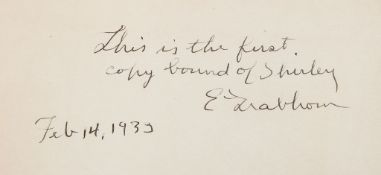 This is the first.
copy bound of Shirley
E Grabhorn
Feb 14, 1933